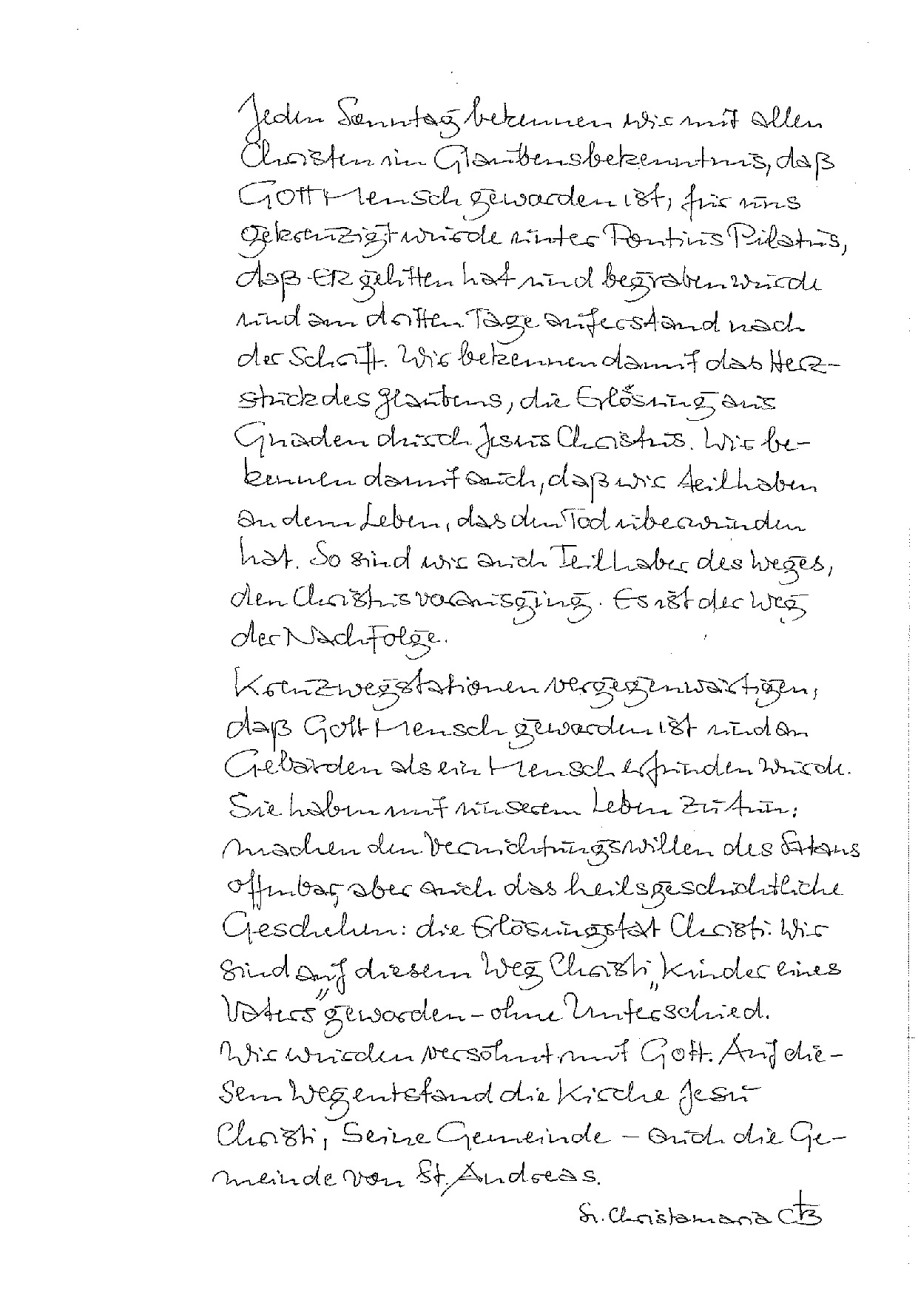 Jeden Sonntag bekennen wir mit allen
Christen im Glaubensbekenntnis, daß
GOTT Mensch geworden ist, für uns
gekreuzigt wurde unter Pontius Pilatus,
daß ER gelitten hat und begraben wurde
und am dritten Tage auferstand nach
der Schrift. Wir bekennen damit das Herz-
stück des Glaubens, die Erlösung aus
Gnaden durch Jesus Christus. Wir be-
kennen damit auch, daß wir teilhaben
an dem Leben, das den Tod überwunden
hat. So sind wir auch Teilhaber des Weges,
den Christus vorausging. Es ist der Weg
der Nachfolge.
Kreuzwegstationen vergegenwärtigen,
daß Gott Mensch geworden ist und an
Gebärden als ein Mensch erfunden wurde.
Sie haben mit unserem Leben zu tun;
machen den Vernichtungswillen des Satans
offenbar, aber auch das heilsgeschichtliche
Geschehen: die Erlösungstat Christi. Wir
sind auf diesem Weg Christi „Kinder eines
Vaters" geworden – ohne Unterschied.
Wir wurden versöhnt mit Gott. Auf die-
sem Weg entstand die Kirche Jesu
Christi, Seine Gemeinde – auch die Ge-
meinde von St. Andreas.
Sr. Christamaria CB